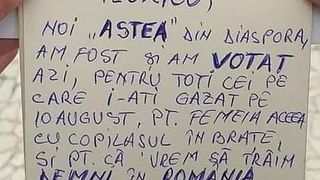 NOI „ASTEA" DIN DIASPORA,
AM FOST ȘI AM VOTAT
AZI, PENTRU TOȚI CEI PE
CARE I-AȚI GAZAT PE
10 AUGUST, PT. FEMEIA ACEEA
CU COPILAȘUL ÎN BRAȚE,
ȘI PT. CĂ VREM SĂ TRĂIM
DEMNI ÎN ROMÂNIA